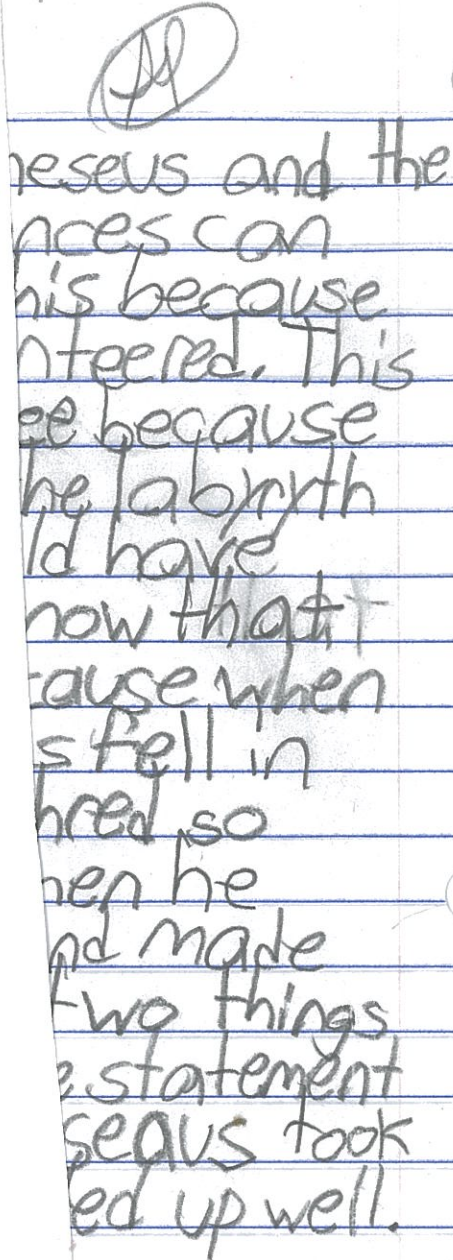 M
heseus and the
nces can
his because
nteered. This
ee because
he labyryth
ld have
now that
cause when
s fell in
hred so
hen he
nd made
two things
e statement
seaus took
ed up well.